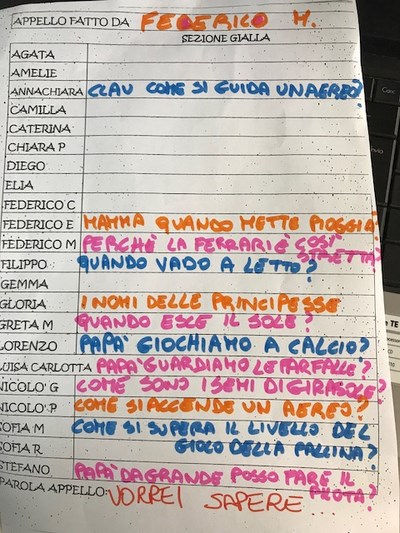 APPELLO FATTO DA FEDERICO M.
SEZIONE GIALLA
AGATA
AMELIE
ANNACHIARA CLAU COME SI GUIDA UN AEREO?
CAMILLA
CATERINA
CHIARA P
DIEGO
ELIA
FEDERICO C
FEDERICO E MAMMA QUANDO METTE PIOGGIA?
FEDERICO M PERCHÈ LA FERRARI È COSÌ
STRETTA?
FILIPPO QUANDO VADO A LETTO?
GEMMA
GLORIA I NOMI DELLE PRINCIPESSE
GRETA M QUANDO ESCE IL SOLE?
LORENZO PAPA' GIOCHIAMO A CALCIO?
LUISA CARLOTTA PAPA' GUARDIAMO LE FARFALLE?
NICOLO' G COME SONO I SEMI DI GIRASOLE?
NICOLO' P COME SI ACCENDE UN AEREO?
SOFIA M COME SI SUPERA IL LIVELLO DEL
SOFIA R GIOCO DELLA PALLINA?
STEFANO PAPA' DA GRANDE POSSO FARE IL
PILOTA?
PAROLA APPELLO: VORREI SAPERE...